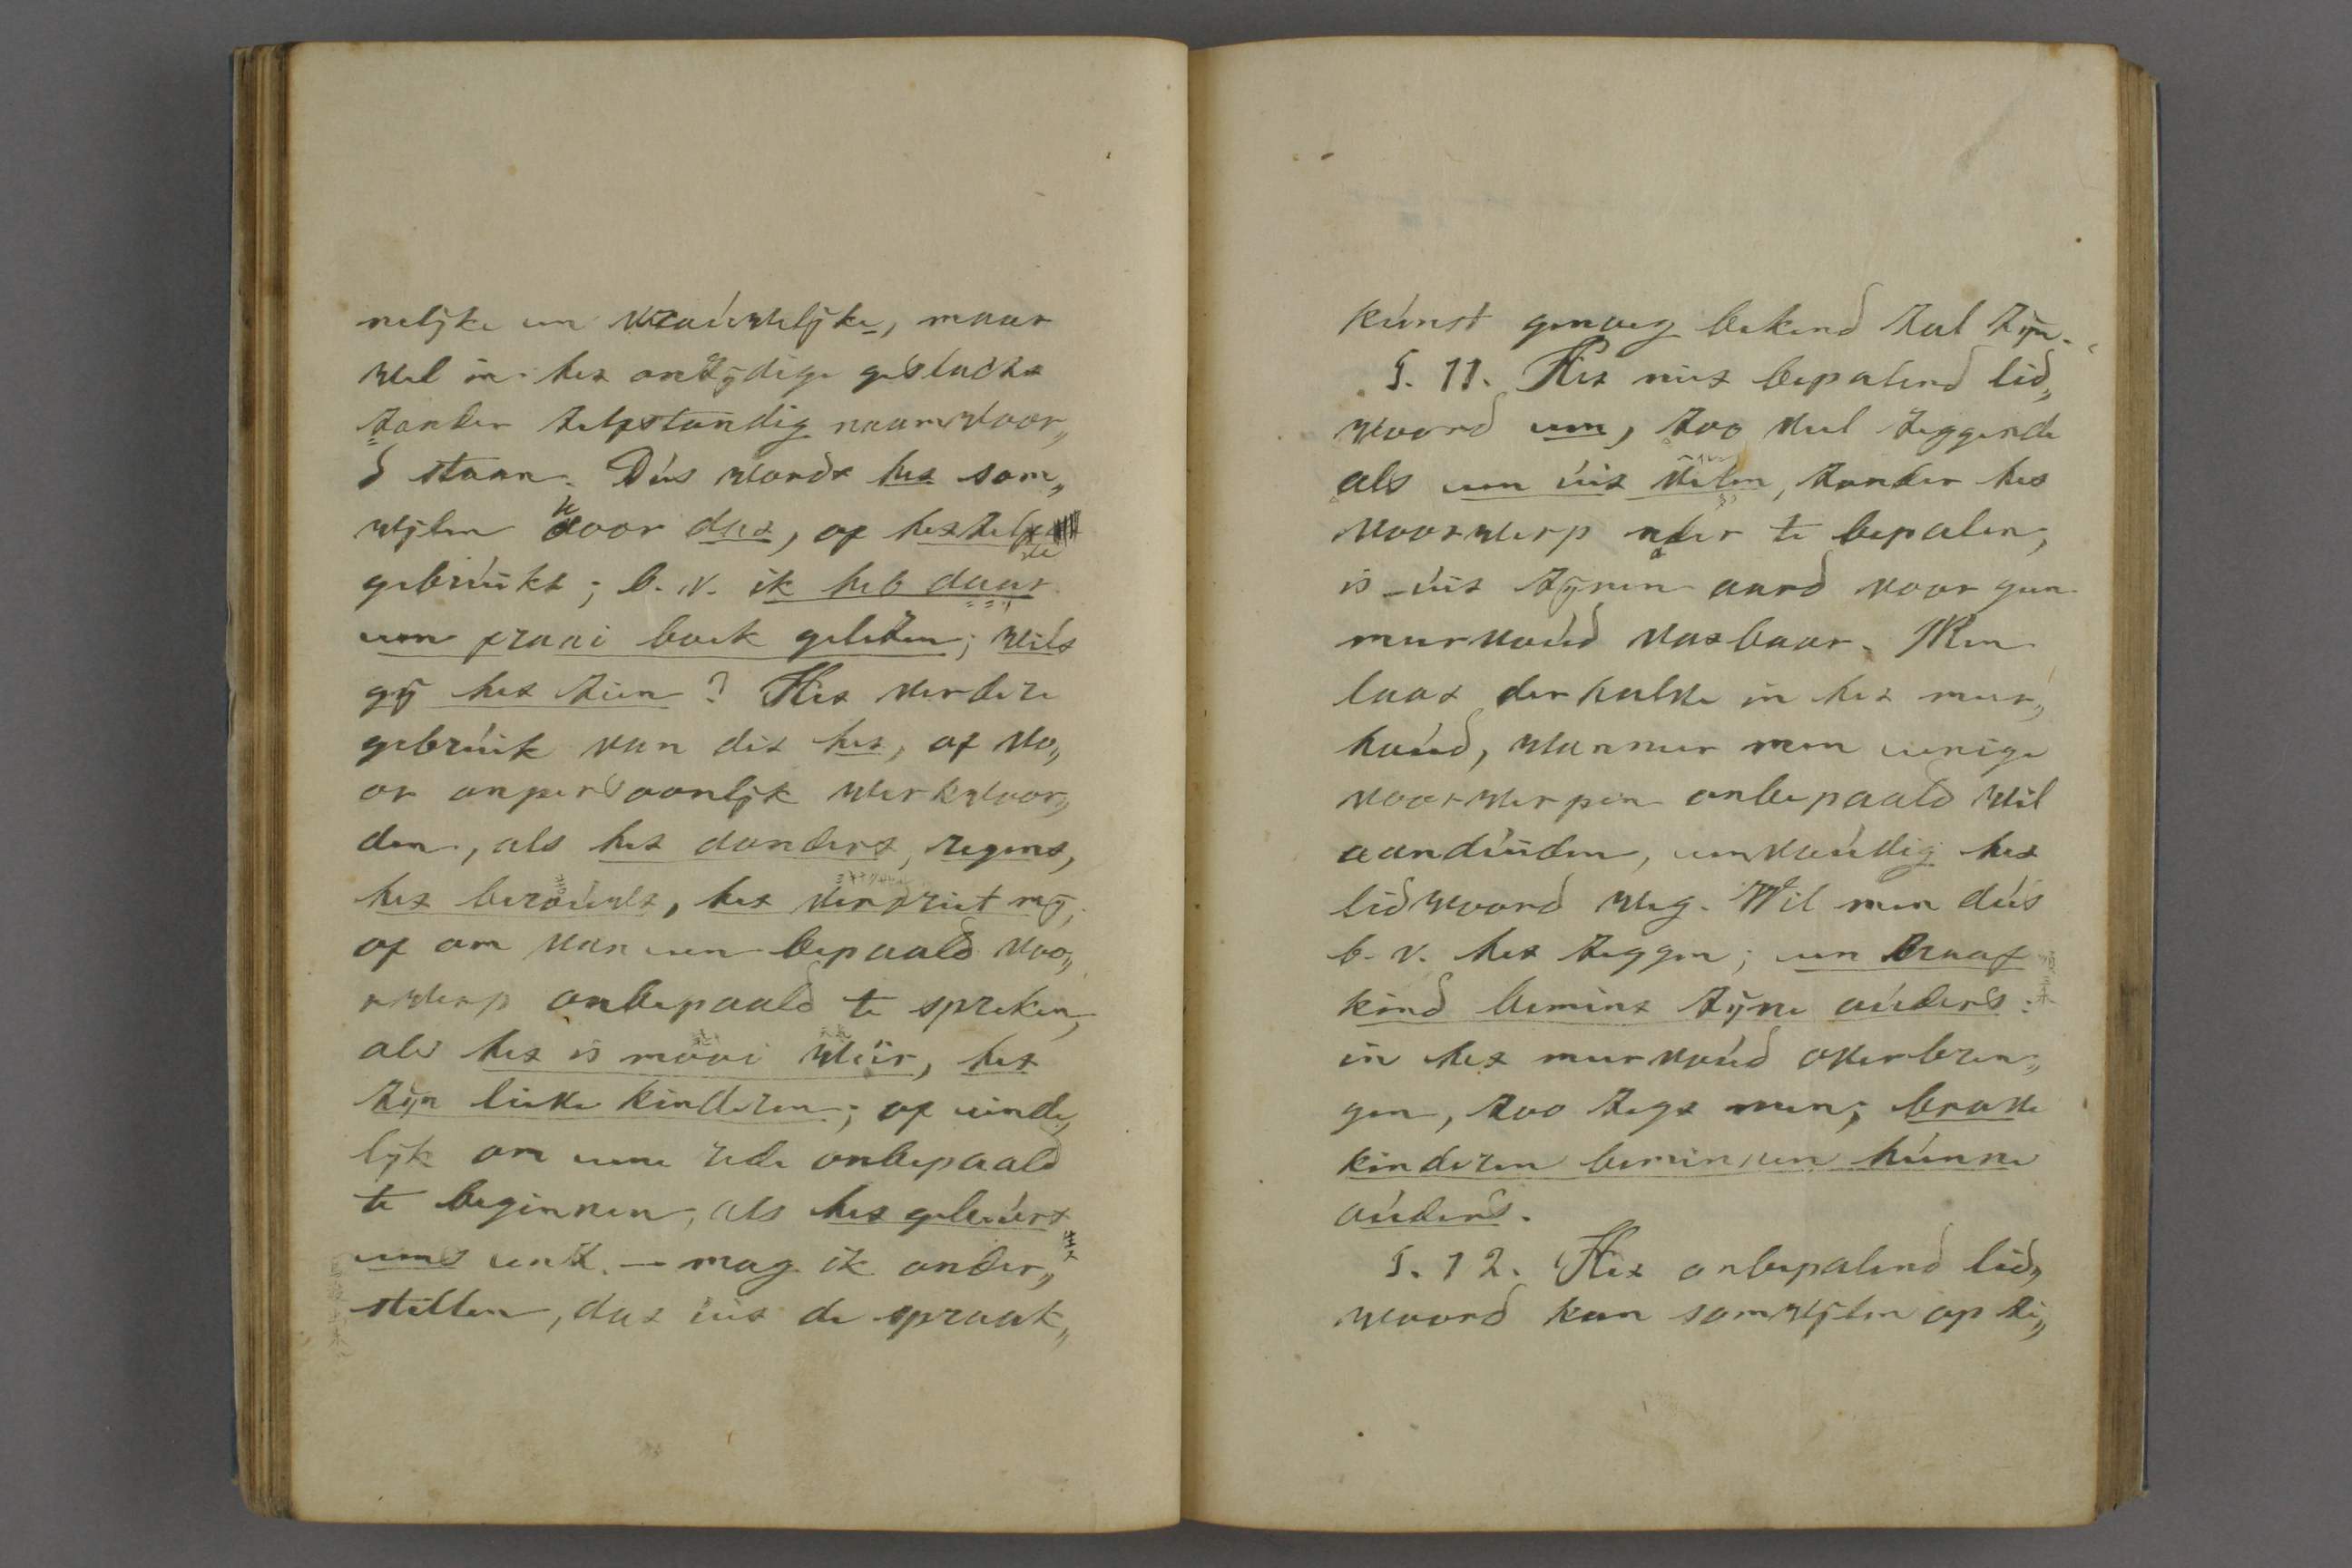 nelijke een vrouwelijke, maar
wel in het onzijdige geslacht
zonder zelfstandig naamwoor„
d staan. Dus wordt het som„
wijlen voor dat, of hetzelfde
gebruikt; b. v. ik heb daar
een fraai boek gelezen; wilt
gij het zien? Het verdere
gebruik van dit het, of vo„
or onpersoonlijk werkwoor„
den, als het dondert, regent,
het berouwt, het verdriet mij;
of om van een bepaald voo„
rwerp onbepaald te spreken,
als het is mooi weêr, het
zijn lieve kinderen; of einde„
lijk om eene rede onbepaald
te beginnen, als het gebeurt
eens enz. — mag ik onder„
stellen, dat uit de spraak„
kunst genoeg bekend zal zijn.
§. 11. Het niet bepalend lid„
woord een, zoo veel zeggende
als een uit velen, zonder het
voorwerp nader te bepalen,
is uit zijnen aard voor geen
meervoud vatbaar. Men
laat derhalve in het meer„
houd, wanneer men eenige
voorwerpen onbepaald wil
aanduiden, eenvoudig het
lidwoord weg. Wil men dus
b. v. het zeggen; een braaf
kind bemint zijne ouders:
in het meervoud overbren„
gen, zoo zegt men; brave
kinderen beminnen hunne
ouders.
§. 12. Het onbepalend lid„
woord kan somwijlen op zi„